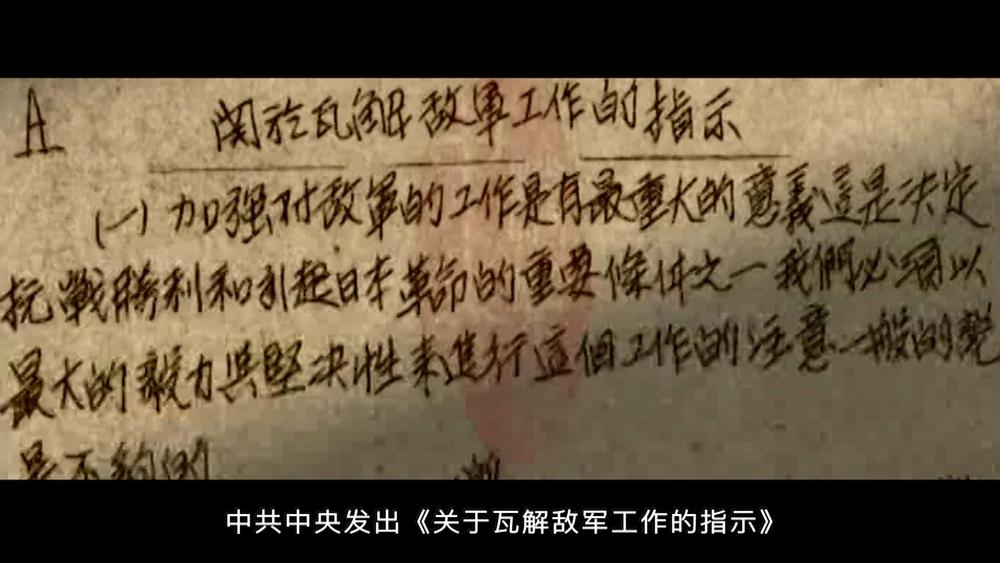 A
関於瓦解敌軍工作的指示
(一)加强对敌軍的工作是有最重大的意義這是决定
抗戰勝利和引起日本革命的重要條件之一我們必須以
最大的毅力與堅决性來進行這個工作的注意一般的說
是不夠的
中共中央发出《关于瓦解敌军工作的指示》